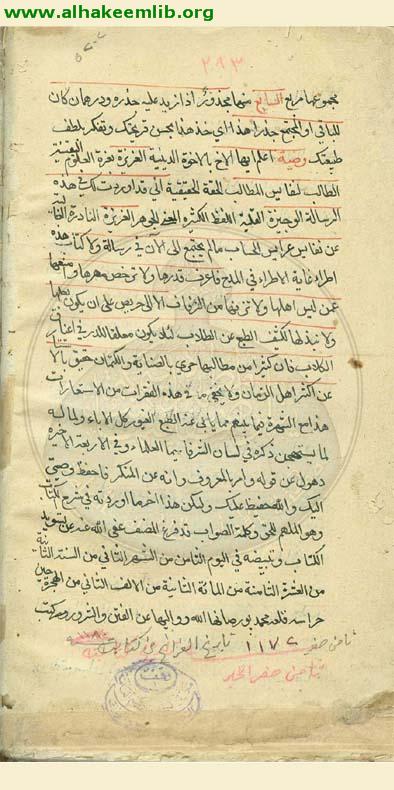 www.alhakeemlib.org
٢٩٣
مجموعهما مربع السابع منهما مجذور اذا زيد عليه جذره ودرهمان كان
للباقي او المجتمع جذر هذا اي خذ هذا بحسن قريحتك وتفكر بلطف
طبيعتك وصية اعلم ايها الاخ بالاخوة الدينية العزيزة بعزة العلوم اليقينية
الطالب لنفايس المطالب الحقة الحقيقية اني قد اوردت لك في هذه
الرسالة الوجيزة القليلة اللفظ الكثيرة المعنى للجوهر العزيزة النادرة
من نفايس عرايس الحساب ما لم يجتمع الى الآن في رسالة ولا كتاب هذه
اطراء غاية الاطراء في المدح فاعرف قدرها ولا ترخص مهرها وامنعها
عمن ليس اهلها ولا تزفها من الزفاف الا الى حريص على ان يكون بعلها
ولا تبذلها لكثيف الطبع من الطلاب لئلا يكون معلقا للدرر في اعناق
الكلاب فان كثيرا من مطالبها حري بالصيانة والكتمان حقيق بالاستتار
عن اكثر اهل الزمان ولا يخفى ما في هذه الفقرات من الاستعارات
هذا مع الشهرة فيما بينهم مما يابى عنه الطبع الغيور كل الاباء
لما يستهجن ذكره في لسان الشرفا سيما العلماء وفي الاربعة الاخيرة
ذهول عن قوله وامر بالمعروف وانه عن المنكر فاحفظ وصيتي
اليك والله حفيظ عليك وليكن هذا اخر ما اوردته في شرح الكتاب
وهو الملهم للحق وكلمة الصواب قد فرغ المصنف عفى الله عنه عن تسويد
الكتاب وتبييضه في اليوم الثامن من الشهر الثاني من السنة الثانية
من العشرة الثامنة من المائة الثانية من الالف الثاني من الهجرة حين
حراسه قلعه محمد پور صانها الله وواليها عن الفتن والشرور
ثامن صفر ١١٧٢ تاريخ الفراغ
ثامن صفر الخير